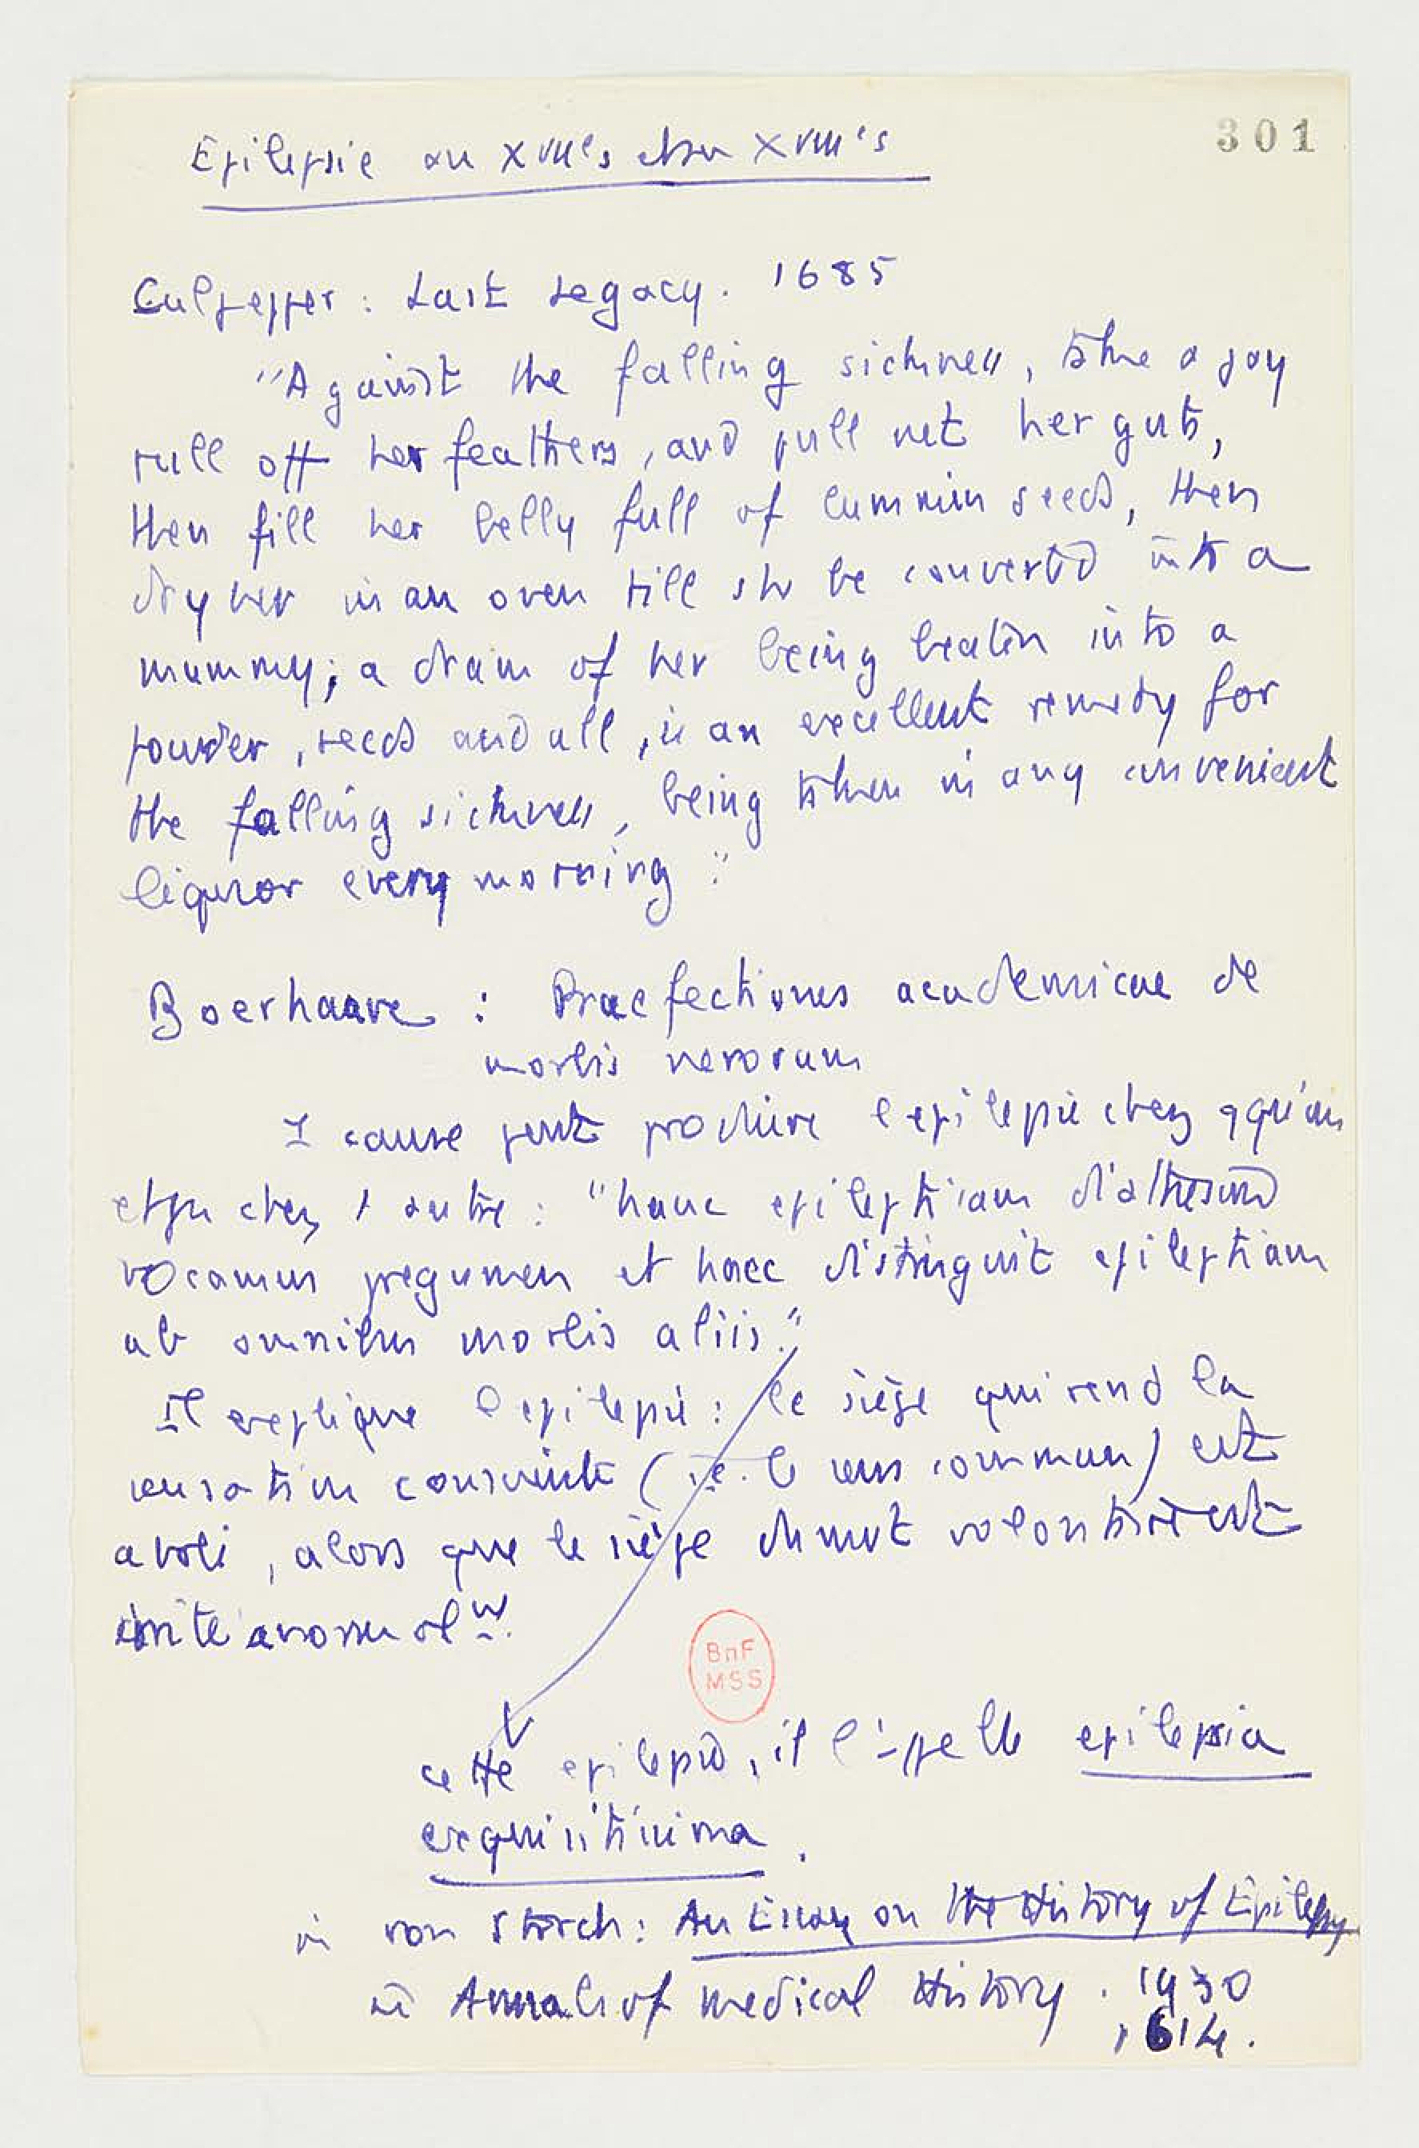 301
Epilepsie au XVIIe s et au XVIIIe s
Culpepper : Last Legacy. 1685
"Against the falling sickness, take a jay
pull off her feathers, and pull out her guts,
then fill her belly full of cummin seed, then
dry her in an oven till she be converted into a
mummy; a dram of her being beaten into a
powder, seeds and all, is an excellent remedy for
the falling sickness, being taken in any convenient
liquor every morning."
Boerhaave : Praefectiones academicae de
morbis nervorum
1 cause peut produire l'epilepsie chez qqu'un
et pu chez 1 autre : "hanc epileptiam diathesim
vocamus et haec distinguit epileptiam
ab omnibus morbis aliis."
Il explique l'epilepsie : le siège qui rend la
sensation consciente (i.e. le sens commun) est
aboli, alors que le siège du mvt volontaire est
irrité anormalt.
BnF
MSS
cette epilepsie, il l'appelle epilepsia
exquisitissima.
in von Storch : An Essay on the History of Epilepsy
in Annals of medical History. 1930
p 614.